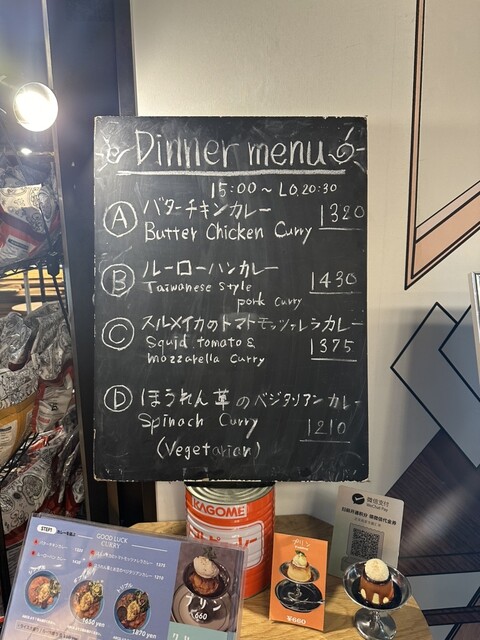 Dinner menu
15:00 ~ L.O. 20:30
Ⓐ バターチキンカレー 1320
Butter Chicken Curry
Ⓑ ルーローハンカレー 1430
Taiwanese Style
pork curry
Ⓒ スルメイカのトマトモッツァレラカレー
Squid, tomato & 1375
mozzarella curry
Ⓓ ほうれん草のベジタリアンカレー
Spinach Curry 1210
(Vegetarian)
KAGOME
微信支付
WeChat Pay
STEP1
GOOD LUCK
CURRY
プリン
¥660
プリン
¥660
1450 yen
1870 yen